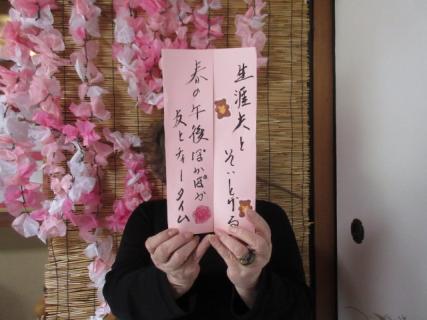 生涯夫と
そいとげる
春の午後ぽかぽか
友とティータイム